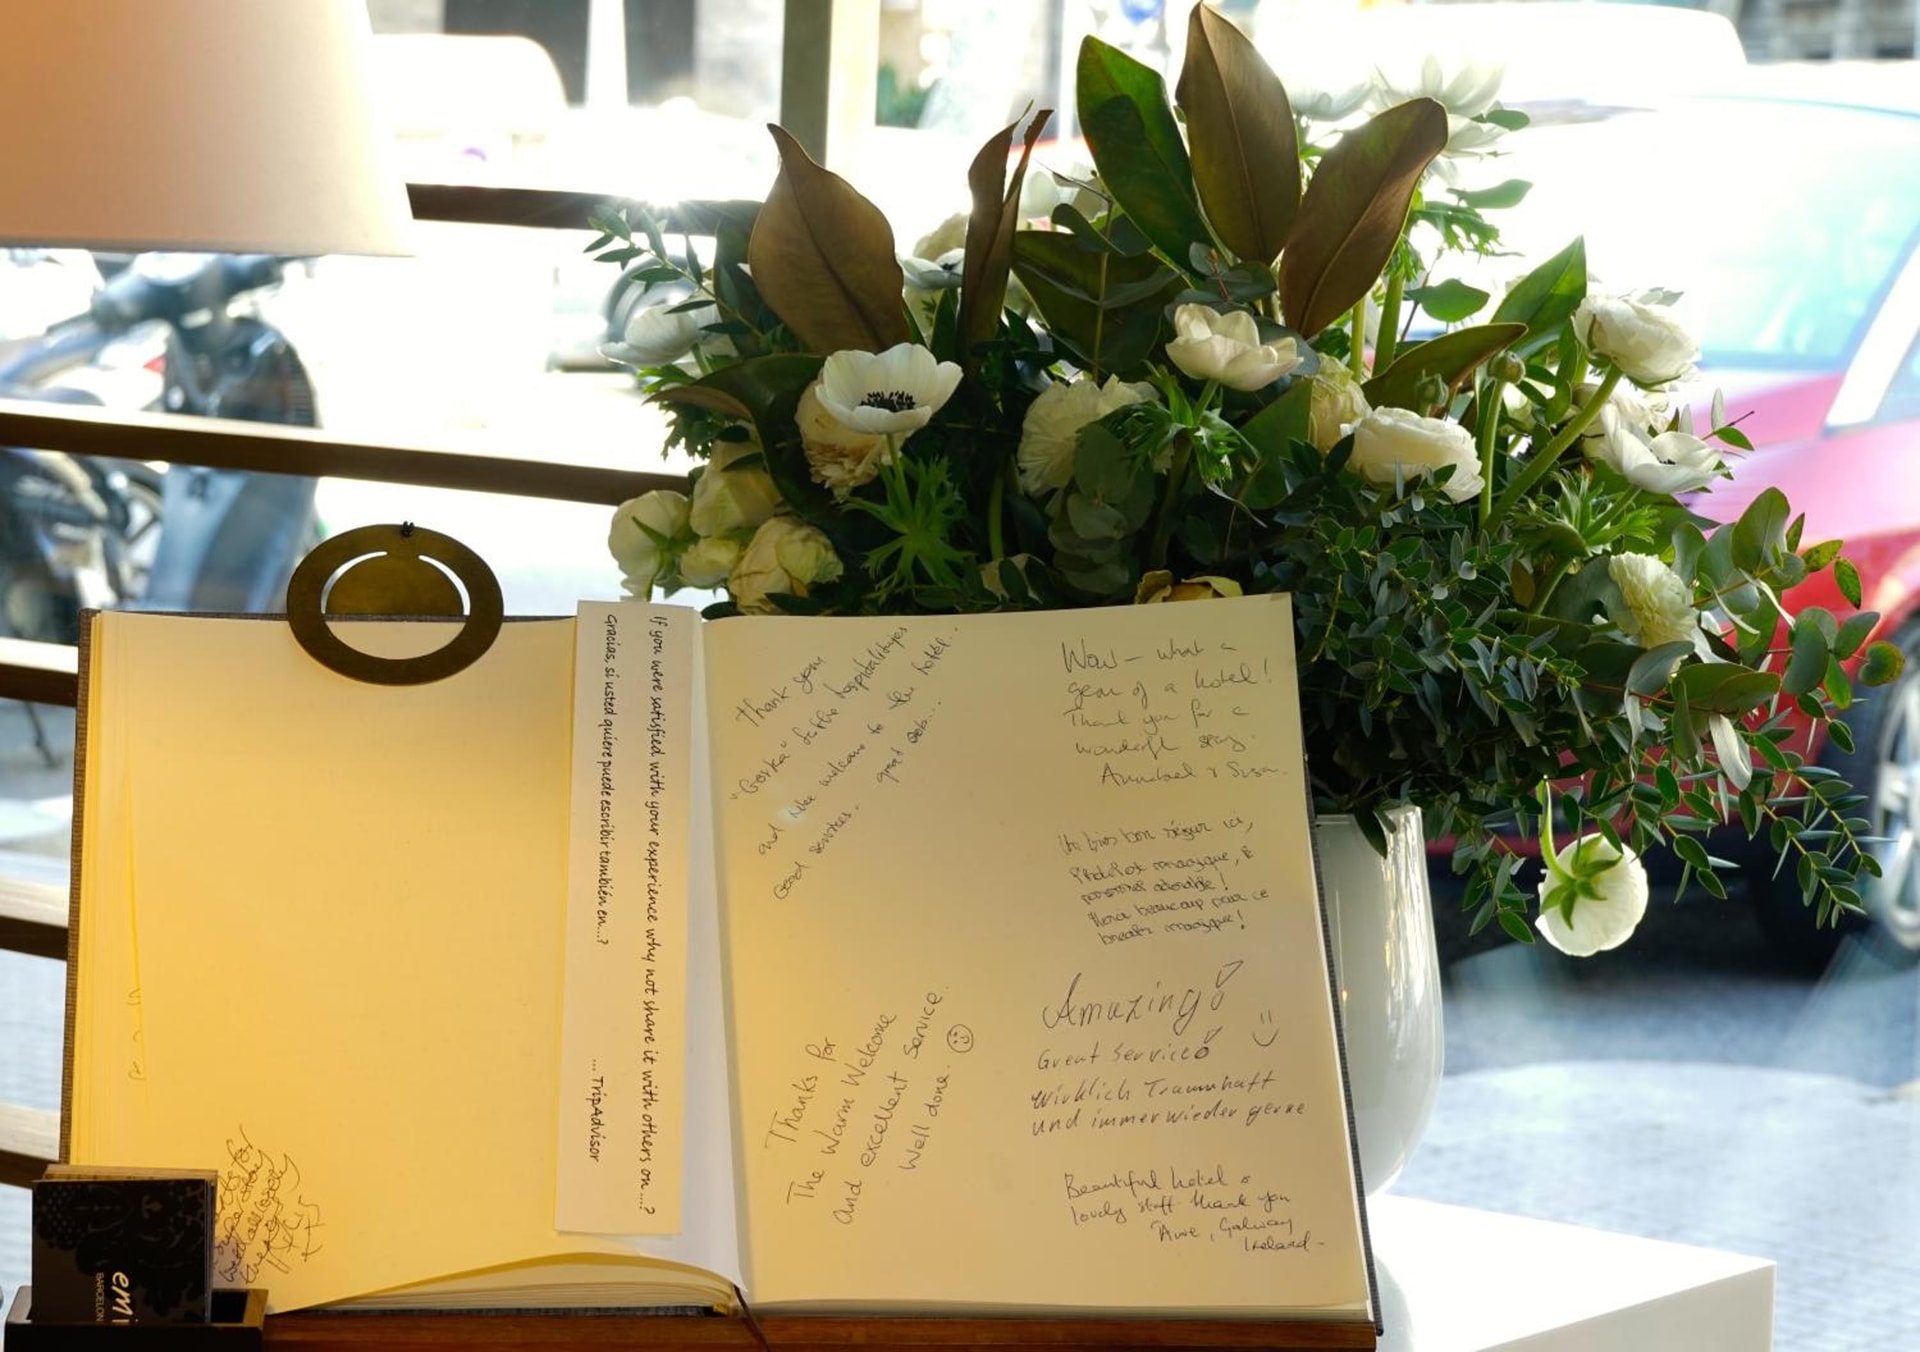 If you were satisfied with your experience why not share it with others on...?
Gracias, si usted quiere puede escribir también en...?
... TripAdvisor
Thank you
"Gorka" for the hospitalityes
and welcome to the hotel..
Good services. great
Thanks for
The Warm Welcome
And excellent service.
Well done.
Wow – what a
gem of a hotel!
Thank you for a
wonderful stay.
Annabel & Susan.
Un très bon séjour ici,
l'hôtel est magique, le
personnel adorable!
Merci beaucoup pour ce
break magique!
Amazing!
Great Service!
Wirklich Traumhaft
und immer wieder gerne
Beautiful hotel &
lovely staff. Thank you
Galway
Ireland–
BARCELON